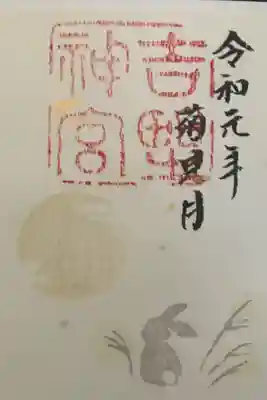 令和元年
菊旦月
神宮